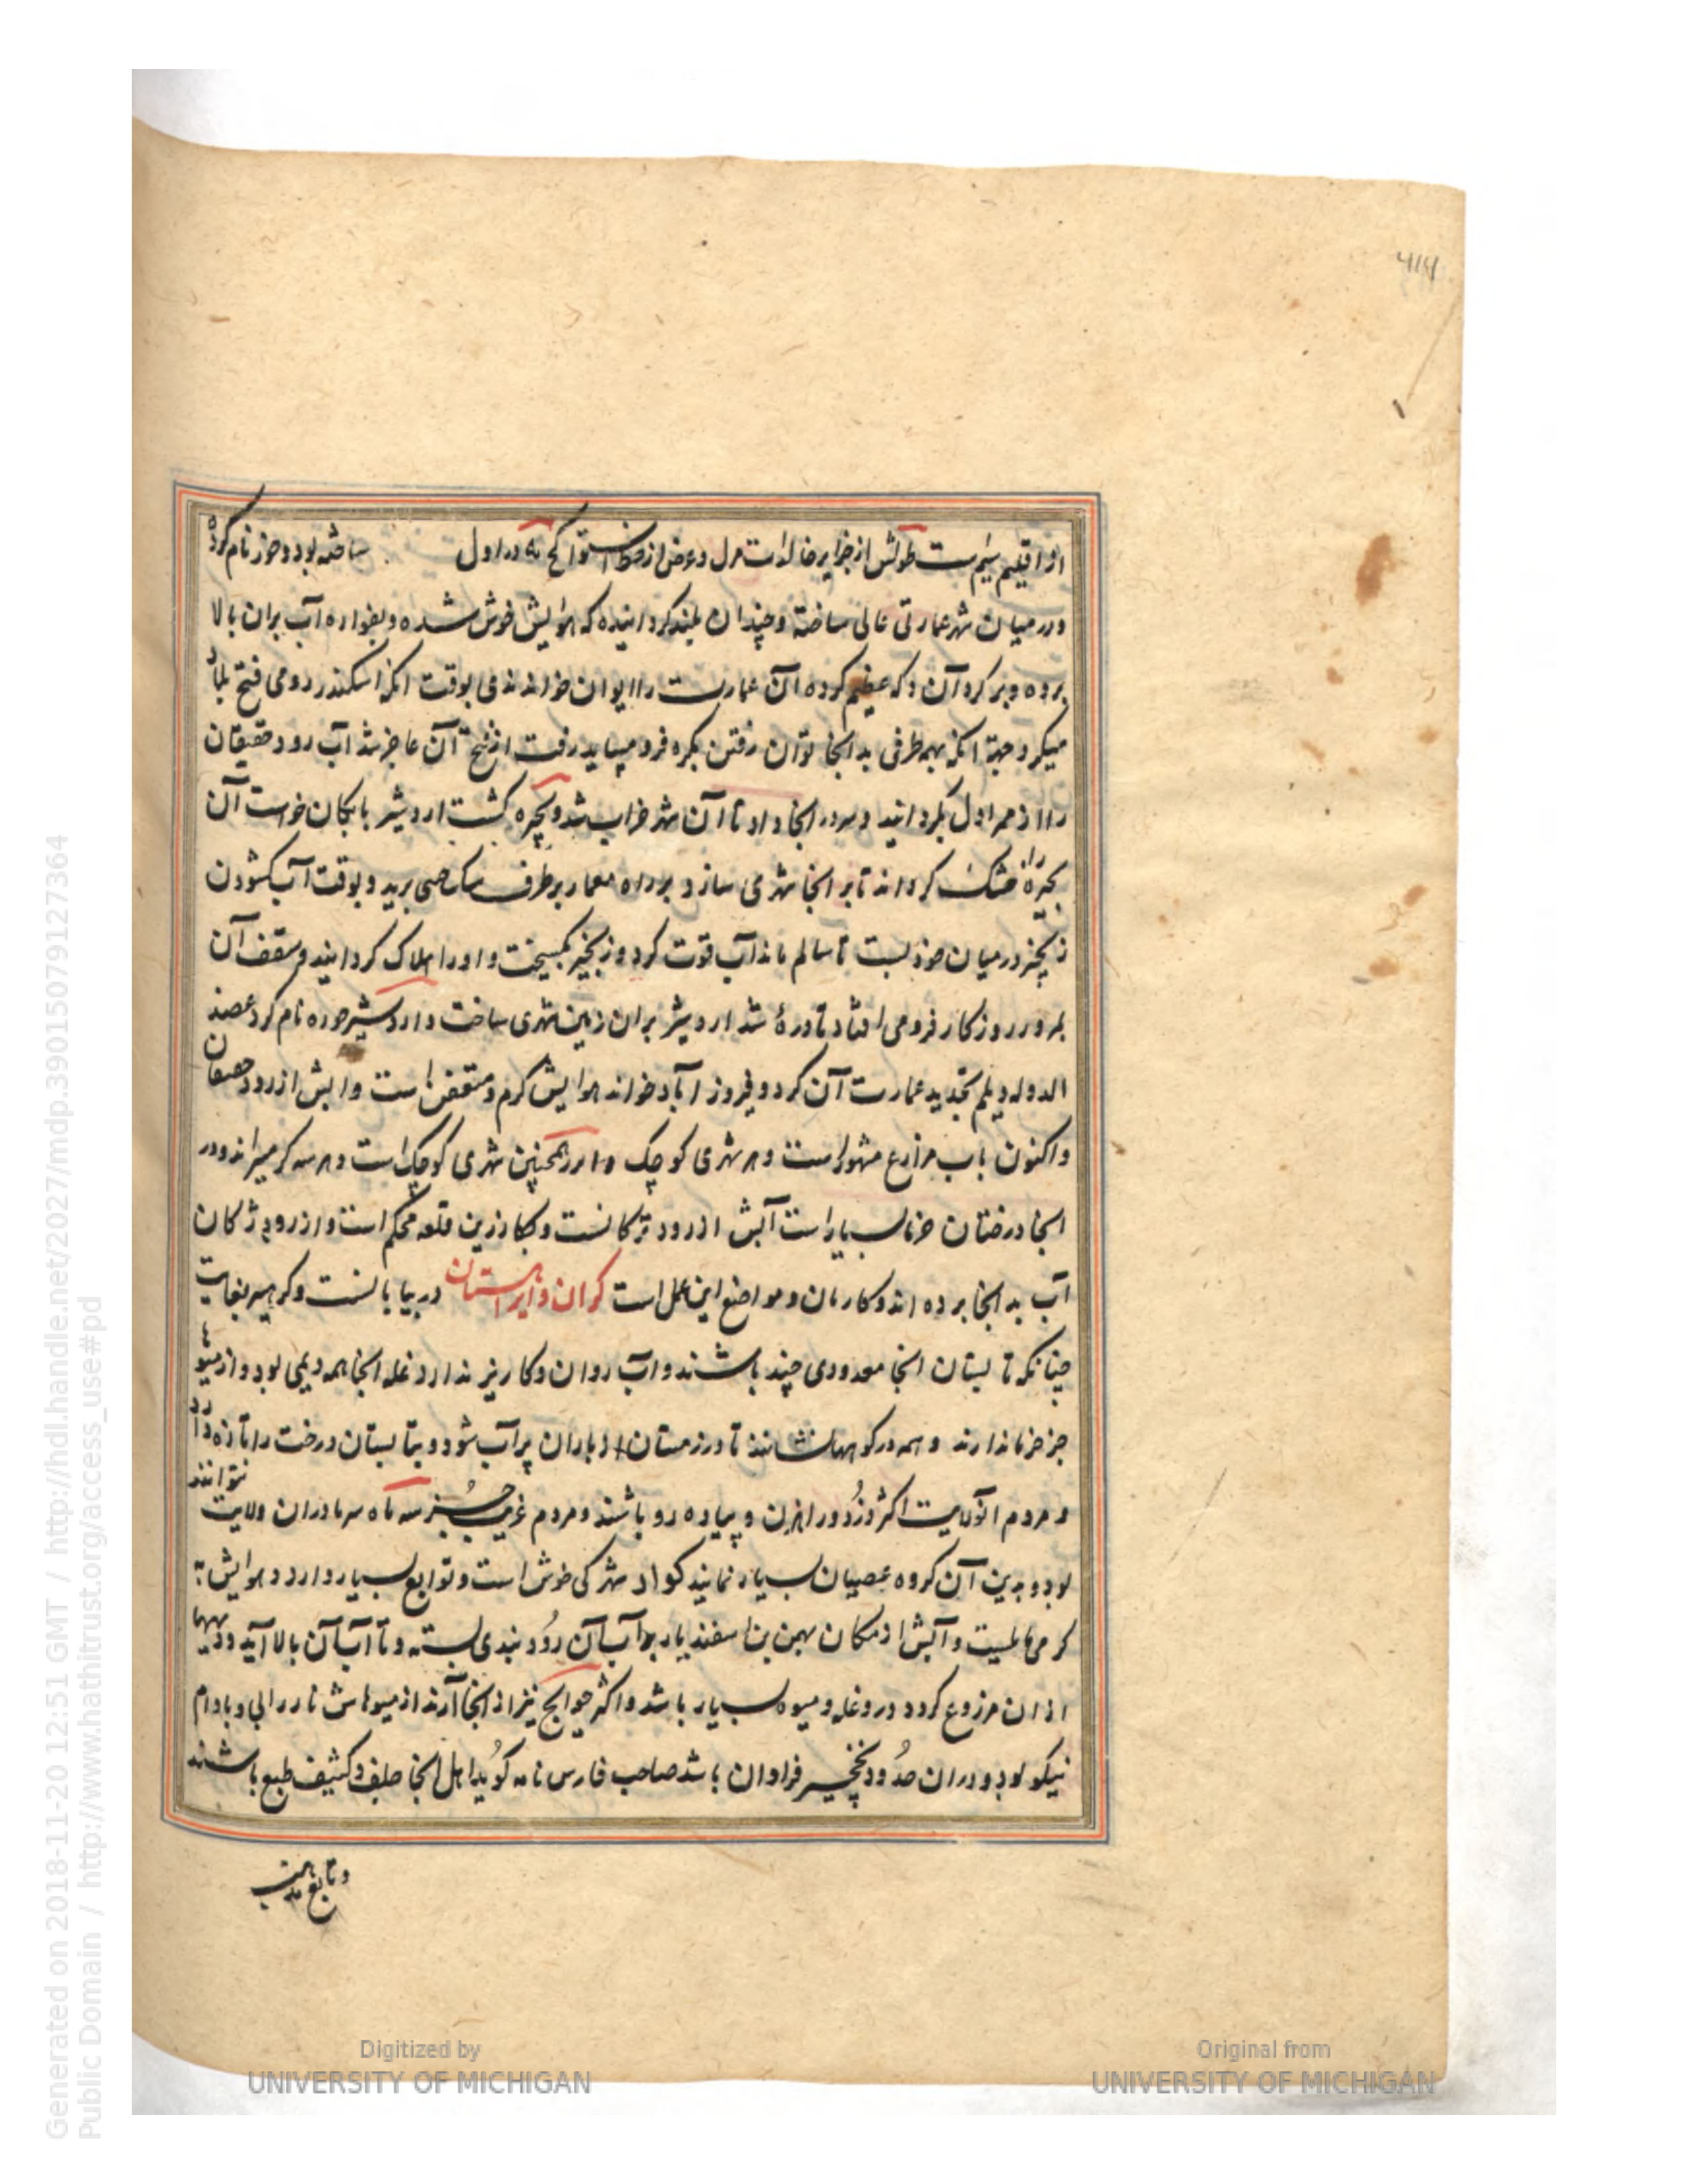 ۴۱۴
از اقلیم سیم است طولش از جزایر خالدات و عرض از خط استوا کح در اول ساخته بود و خور نام کرده
و در میان شهر عمارتی عالی ساخته و چندان بلند کردانیده که هوایش خوش شده و بفواره آب بران بالا
برده و بر کرد آن دکه عظیم کرده آن عمارت را ایوان خوانندی بوقت انکه اسکندر رومی فتح بلاد
میکرد جهة انکه بهمه طرفی بدانجا توان رفتن بکره فرو میباید رفت از فتح آن عاجز شد آب رود
را از ممر اول بکردانید و سر در انجا داد تا آن شهر خراب شد و بحیره کشت اردشیر بابکان خواست آن
بحیره را خشک کرداند تا بر انجا شهری سازد معمار بر طرف می برید و بوقت آب کشودن
زنجیر در میان خود بست تا سالم ماند آب قوت کرد و زنجیر بکسیخت و او را هلاک کردانید و سقف آن
بمرور روزکار فرو می افتاد تا دره شد اردشیر بران زمین شهری ساخت و اردشیر خوره نام کرد عضد
الدوله دیلم تجدید عمارت آن کرد و فیروز اباد خواند هوایش کرم و متعفن است و ابش از رود
واکنون باب مزارع مشهور است و هر شهری کوچک و همچنین شهری کوچک است و هر سه کرمسیراند و در
انجا درختان خرما بسیار است آبش از رود ژکانست و بکارزین قلعه محکم است و از رود ژکان
آب بدانجا برده اند و کارنان و مواضع این عمل است کران و ایراهستان در بیابانست و کرمسیر بغایت
چنانکه تابستان انجا معدودی چند باشند و آب روان و کاریز ندارد غله انجا همه دیمی بود و از میوها
جز خرما ندارند و همه در کوهها نشانند تا در زمستان از باران پر آب شود و بتابستان درخت را تازه دارد
و مردم آنولایت اکثر دزد و راهزن و پیاده رو باشند و مردم غریب جز سه ماه سرما در ان ولایت نتوانند
بود و بدین آن کروه عصیان بسیار نمایند کوار شهرکی خوش است و توابع بسیار دارد و هوایش به
کرمی مایلست و آبش از مکان بهمن بن اسفندیار بر آب آن رود بندی بسته و تا آب آن بالا آید و دیهها
ازان مزروع کردد در و غله و میوه بسیار باشد و اکثر حوایج نیز از انجا آرند از میوهاش نار رابی و بادام
نیکو بود و دران حدود نخجیر فراوان باشد صاحب فارس نامه کوید اهل انجا جلف و کثیف طبع باشند
Generated on 2018-11-20 12:51 GMT / http://hdl.handle.net/2027/mdp.39015079127364
Public Domain / http://www.hathitrust.org/access_use#pd
Digitized by
UNIVERSITY OF MICHIGAN
Original from
UNIVERSITY OF MICHIGAN